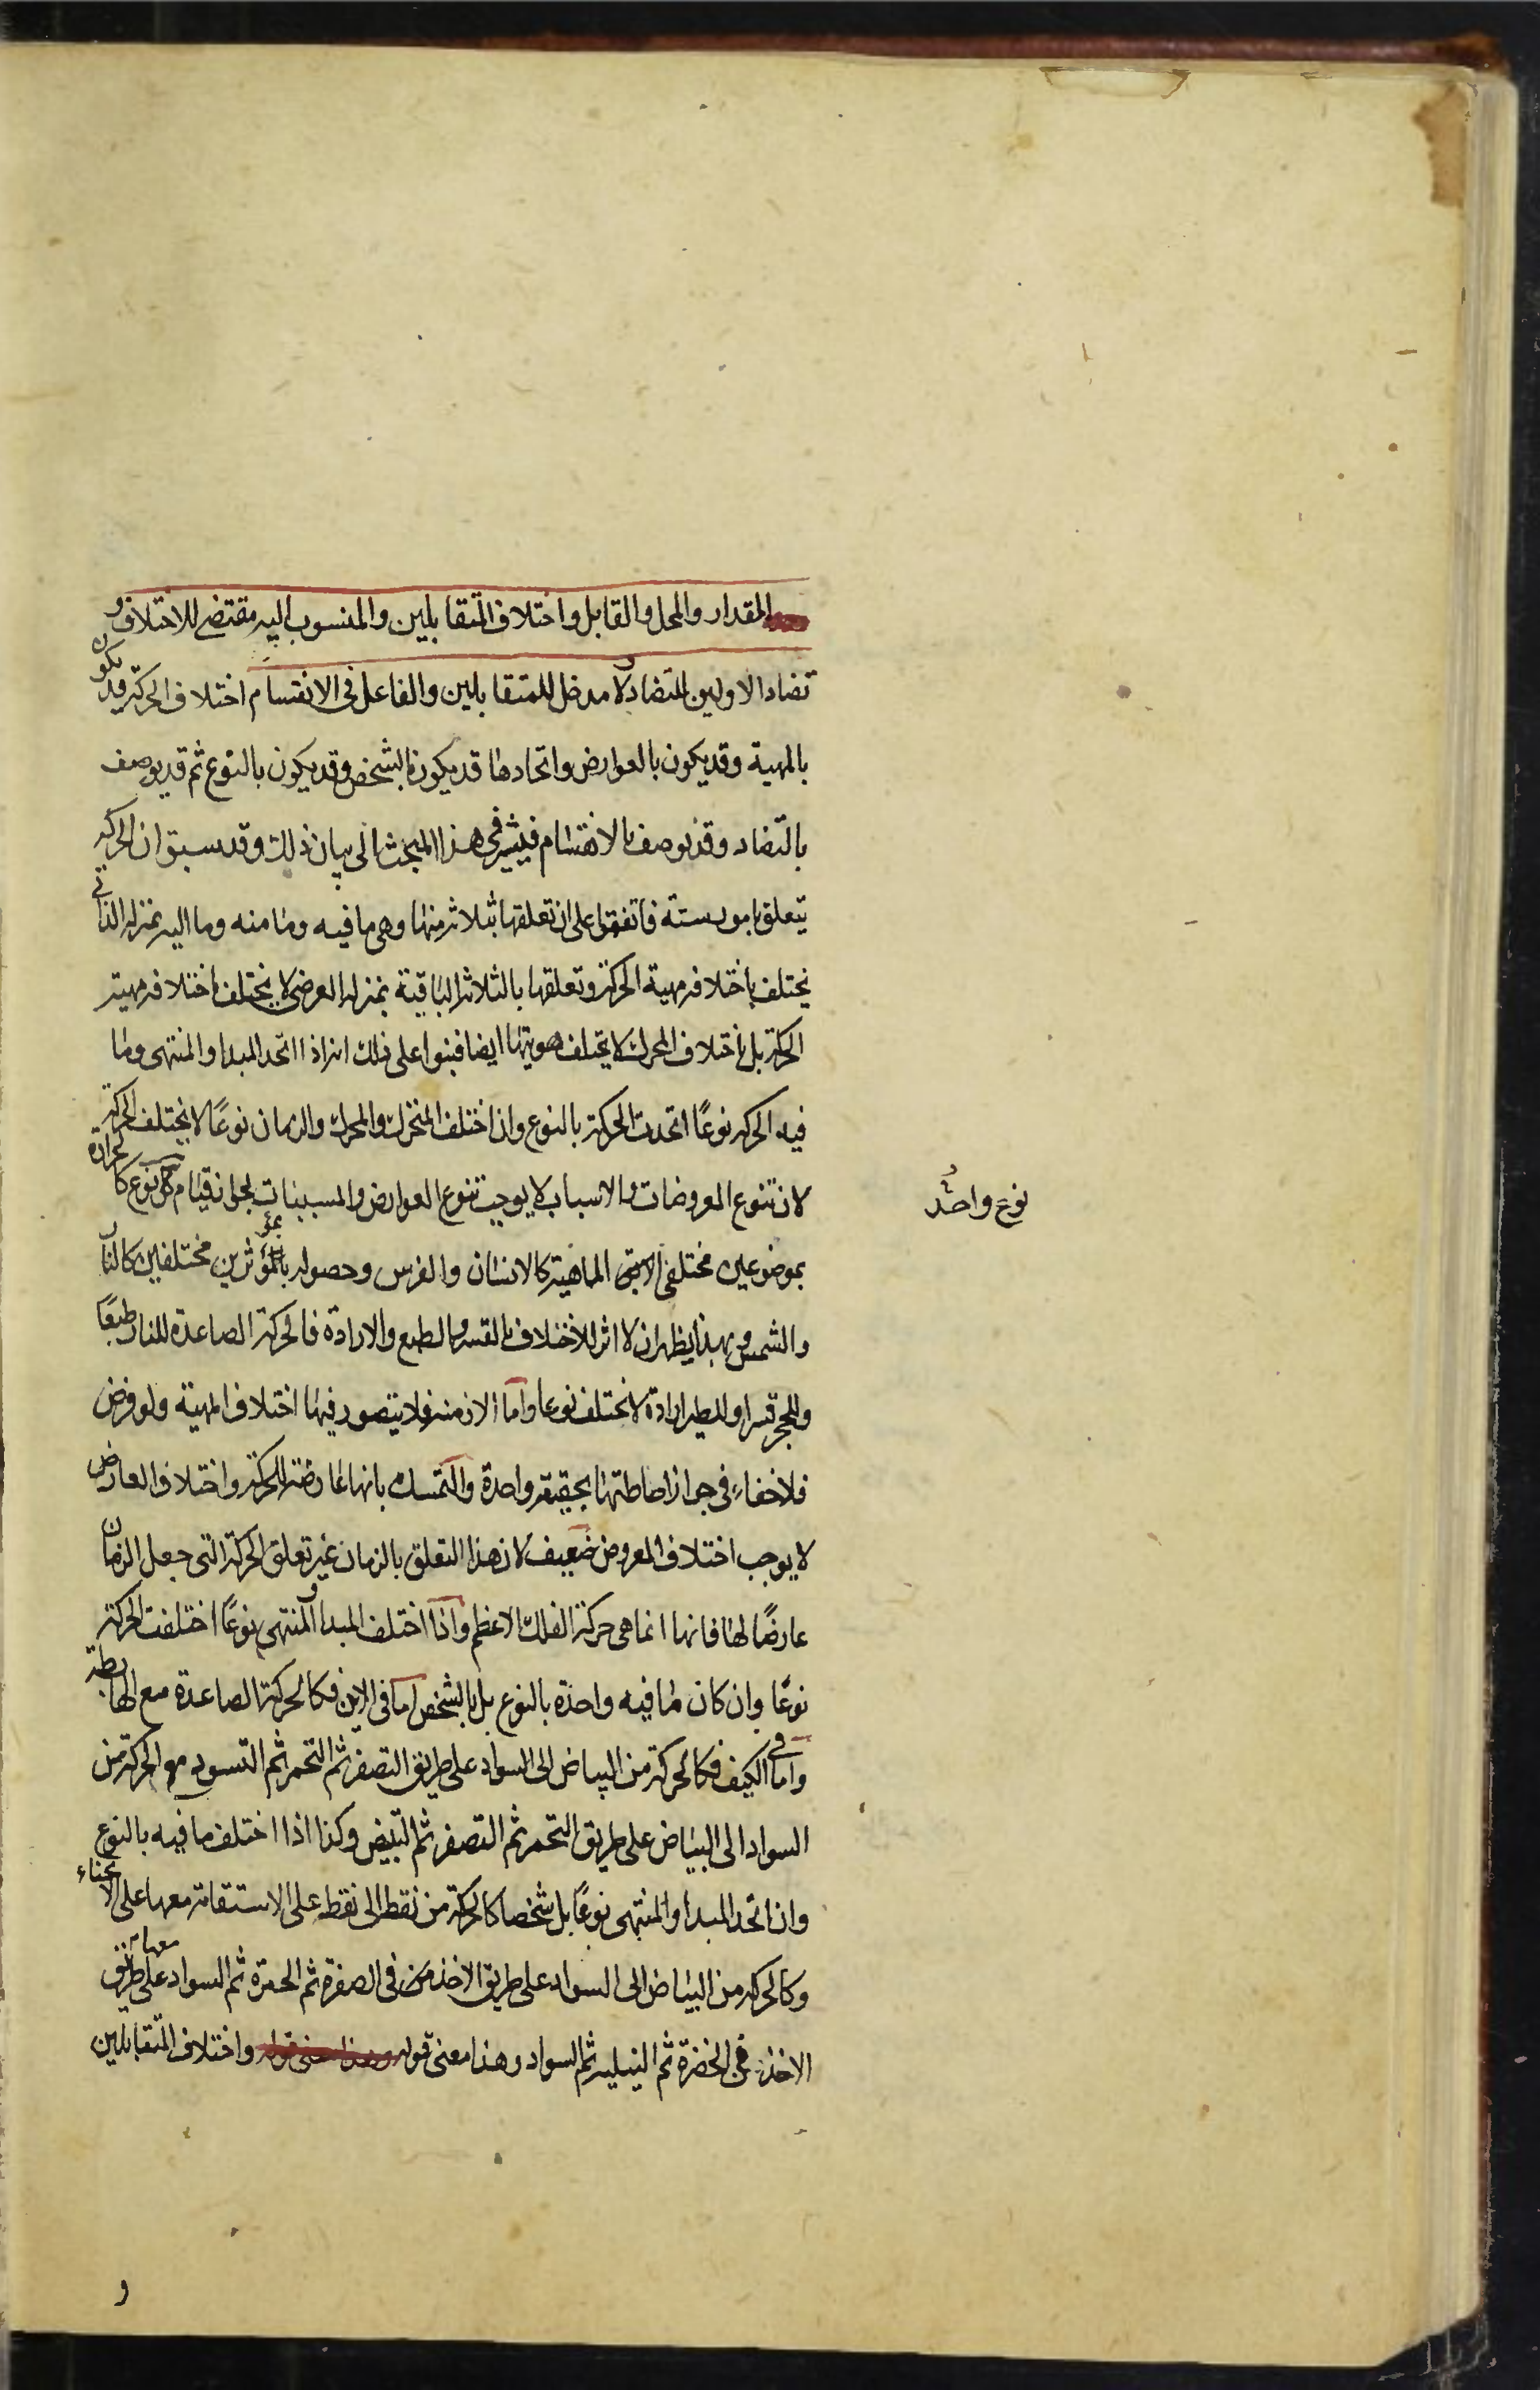 والمقدار والمحل والقابل واختلاف المتقابلين والمنسوب اليه مقتض للاختلاف و
تضاد الاولين للتضاد ولا مدخل للمتقابلين والفاعل فى الانقسام اختلاف الحركة قد يكون
بالمهية وقد يكون بالعوارض واتحادها قد يكون بالشخص وقد يكون بالنوع ثم قد يوصف
بالتضاد وقد يوصف بالانقسام فيشير فى هذا المبحث الى بيان ذلك وقد سبق ان الحركة
يتعلق بامور ستة فاتفقوا على ان تعلقها بثلاثة منها وهى ما فيه وما منه وما اليه بمنزلة الذاتى
يختلف باختلافه مهية الحركة وتعلقها بالثلاثة الباقية بمنزلة العرضى لا يختلف باختلافه مهية
الحركة بل باختلاف المحرك لا يختلف هويتها ايضا فبنوا على ذلك انه اذا اتحد المبدا والمنتهى وما
فيه الحركة نوعًا اتحدت الحركة بالنوع وان اختلف المتحرك والمحرك والزمان نوعًا لا يختلف الحركة
لان تنوع المعروضات والاسباب لا يوجب تنوع العوارض والمسببات لجواز قيام نوع كالحرارة
نوع واحد
بموضوعين مختلفى الماهية كالانسان والفرس وحصوله بمؤثرين مختلفين كالنار
والشمس وبهذا يظهر ان لا اثر للاختلاف بالقسر والطبع والارادة فالحركة الصاعدة للنار طبعًا
وللحجر قسرا وللطير ارادة لا تختلف نوعا واما الازمنة فلا يتصور فيها اختلاف المهية ولو فرض
فلا خفاء فى جواز احاطتها بحقيقة واحدة والتمسك بانها عارضة للحركة واختلاف العارض
لا يوجب اختلاف المعروض ضعيف لان هذا التعلق بالزمان غير تعلق الحركة التى جعل الزمان
عارضًا لها فانها انما هى حركة الفلك الاعظم واذا اختلف المبدا والمنتهى نوعًا اختلفت الحركة
نوعًا وان كان ما فيه واحدة بالنوع بل بالشخص اما فى الاين فكالحركة الصاعدة مع الهابطة
واما فى الكيف فكالحركة من البياض الى السواد على طريق التصفر ثم التحمر ثم التسود مع الحركة من
السواد الى البياض على طريق التحمر ثم التصفر ثم التبيض وكذا اذا اختلف ما فيه بالنوع
وان اتحد المبدا والمنتهى نوعًا بل شخصا كالحركة من نقطة الى نقطة على الاستقامة معها على الانحناء
وكالحركة من البياض الى السواد على طريق الاخذ فى الصفرة ثم الحمرة ثم السواد معها على طريق
الاخذ فى الخضرة ثم النيلية ثم السواد وهذا معنى قوله واختلاف المتقابلين
و